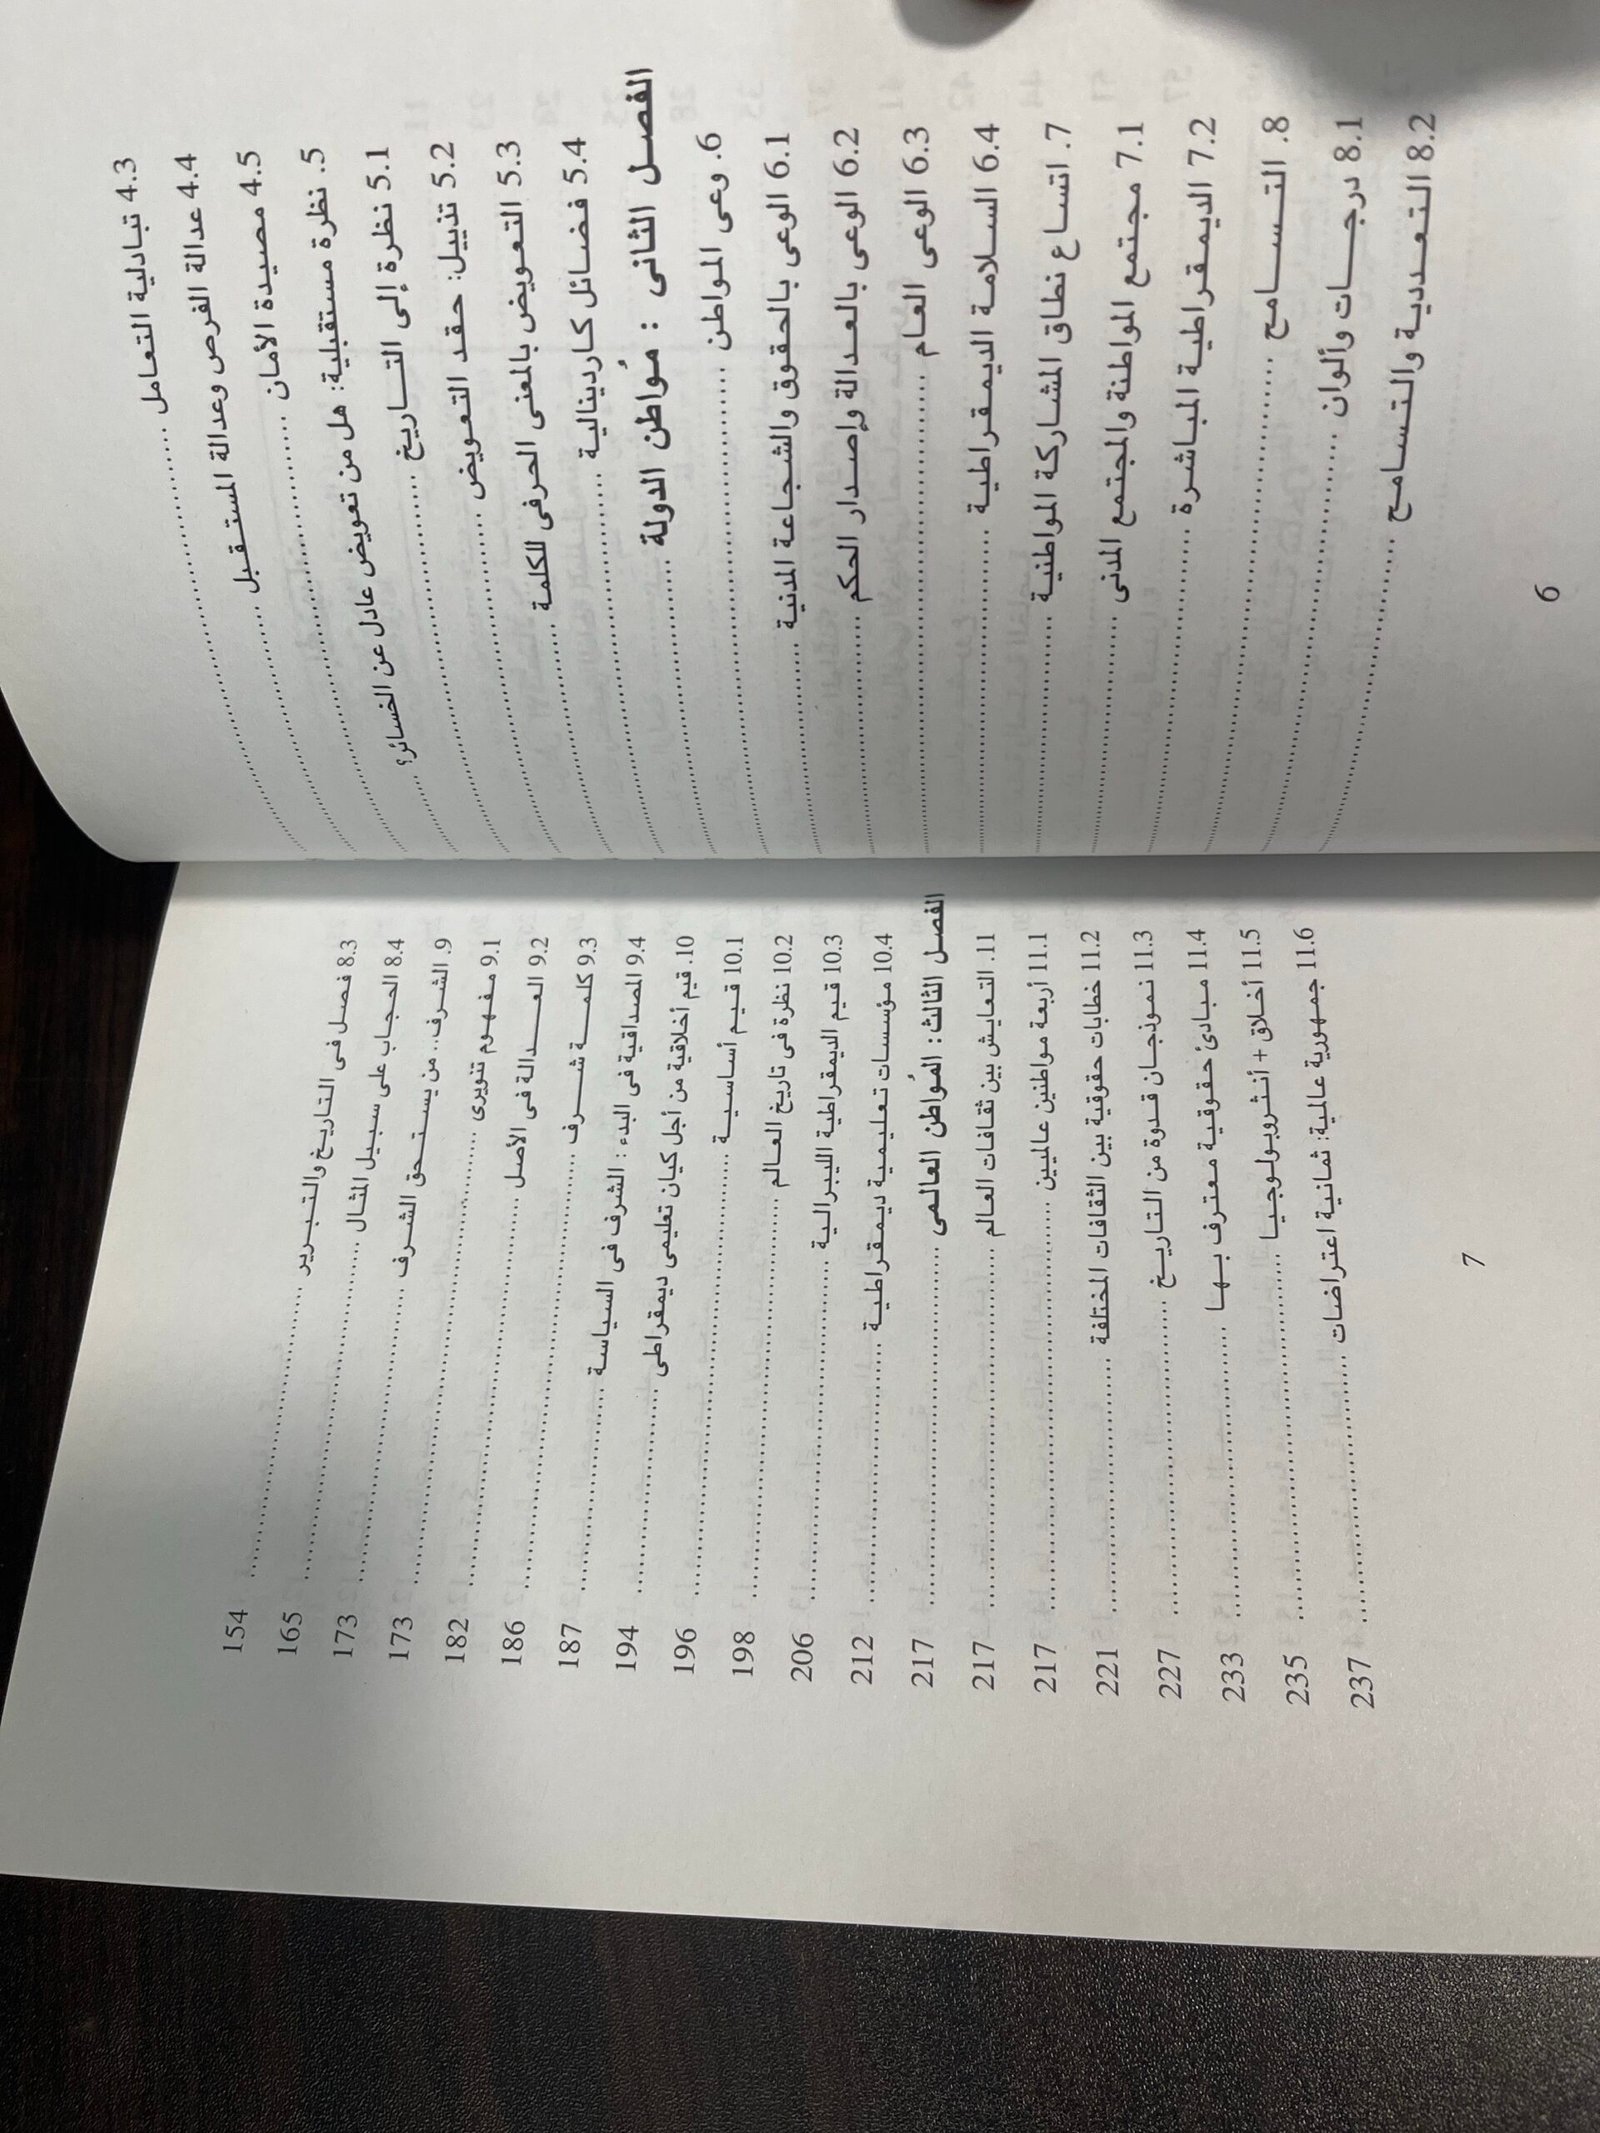 4.3 تبادلية التعامل ........
4.4 عدالة الفرص وعدالة المستقبل ........
4.5 مصيدة الأمان ........
5. نظرة مستقبلية: هل من تعويض عادل عن الخسائر؟ ........
5.1 نظرة إلى التاريخ ........
5.2 تذييل: حقد التعويض ........
5.3 التعويض بالمعنى الحرفى للكلمة ........
5.4 فضائل كاردينالية ........
الفصل الثانى : مُواطن الدولة ........
6. وعى المواطن ........
6.1 الوعى بالحقوق والشجاعة المدنية ........
6.2 الوعى بالعدالة وإصدار الحكم ........
6.3 الوعى العام ........
6.4 السلامة الديمقراطية ........
7. اتساع نطاق المشاركة المواطنية ........
7.1 مجتمع المواطنة والمجتمع المدنى ........
7.2 الديمقراطية المباشرة ........
8. التسامح ........
8.1 درجات وألوان ........
8.2 التعددية والتسامح ........
6
8.3 فصل فى التاريخ والتبرير ........ 154
8.4 الحجاب على سبيل المثال ........ 165
9. الشرف.. من يستحق الشرف ........ 173
9.1 مفهوم تنويرى ........ 173
9.2 العدالة فى الأصل ........ 182
9.3 كلمة شرف ........ 186
9.4 المصداقية فى البدء : الشرف فى السياسة ........ 187
10. قيم أخلاقية من أجل كيان تعليمى ديمقراطى ........ 194
10.1 قيم أساسية ........ 196
10.2 نظرة فى تاريخ العالم ........ 198
10.3 قيم الديمقراطية الليبرالية ........ 206
10.4 مؤسسات تعليمية ديمقراطية ........ 212
الفصل الثالث: المُواطن العالمى ........ 217
11. التعايش بين ثقافات العالم ........ 217
11.1 أربعة مواطنين عالميين ........ 217
11.2 خطابات حقوقية بين الثقافات المختلفة ........ 221
11.3 نموذجان قدوة من التاريخ ........ 227
11.4 مبادئ حقوقية معترف بها ........ 233
11.5 أخلاق + أنثروبولوجيا ........ 235
11.6 جمهورية عالمية: ثمانية اعتراضات ........ 237
7